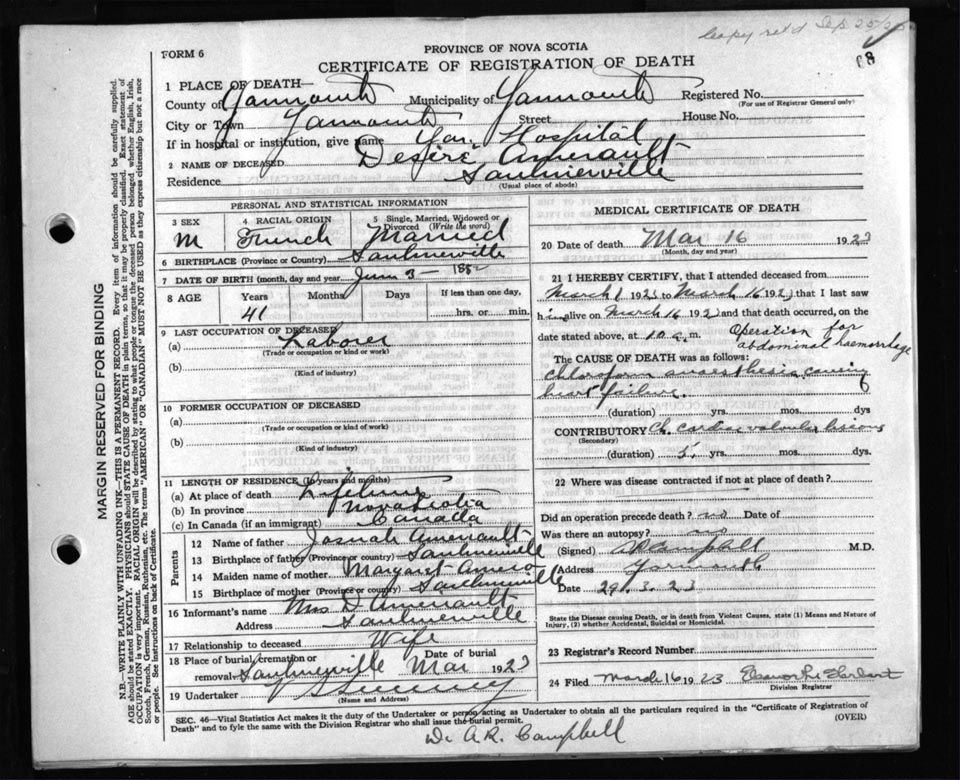 Copy ret'd Sep 25/
68
FORM 6
PROVINCE OF NOVA SCOTIA
CERTIFICATE OF REGISTRATION OF DEATH
1 PLACE OF DEATH—
County of Yarmouth Municipality of Yarmouth Registered No.
(For use of Registrar General only)
City or Town Yarmouth Street House No.
If in hospital or institution, give name Yar. Hospital
2 NAME OF DECEASED Desire Amerault
Residence Saulnierville
(Usual place of abode)
PERSONAL AND STATISTICAL INFORMATION
3 SEX 4 RACIAL ORIGIN 5 Single, Married, Widowed or Divorced (Write the word)
M French Married
6 BIRTHPLACE (Province or Country) Saulnierville
7 DATE OF BIRTH (month, day and year) June 3 - 188
8 AGE Years Months Days If less than one day,
41 hrs. or min.
9 LAST OCCUPATION OF DECEASED
(a) Laborer
(Trade or occupation or kind or work)
(b)
(Kind of industry)
10 FORMER OCCUPATION OF DECEASED
(a)
(Trade or occupation or kind of work)
(b)
(Kind of Industry)
11 LENGTH OF RESIDENCE (In years and months)
(a) At place of death Lifetime
(b) In province Nova Scotia
(c) In Canada (if an immigrant) Canada
Parents
12 Name of father Josuah Amerault
13 Birthplace of father (Province or country) Saulnierville
14 Maiden name of mother Margaret Amero
15 Birthplace of mother (Province or country) Saulnierville
16 Informant's name Mrs D. Amerault
Address Saulnierville
17 Relationship to deceased Wife
18 Place of burial, cremation or removal Saulnierville Date of burial Mar 1923
19 Undertaker Sweeney
(Name and Address)
MEDICAL CERTIFICATE OF DEATH
20 Date of death Mar 16 1923
(Month, day and year)
21 I HEREBY CERTIFY, that I attended deceased from
March 1 1923 to March 16 1923 that I last saw
him alive on March 16 1923 and that death occurred, on the
date stated above, at 10 a. m. Operation for
abdominal haemorrhage
The CAUSE OF DEATH was as follows:
Chloroform anaesthesia causing
heart failure.
(duration) yrs. mos. dys
CONTRIBUTORY Ch. cardiac valvular lesions
(Secondary)
(duration) 5. yrs. mos. dys
22 Where was disease contracted if not at place of death?
Did an operation precede death? no Date of
Was there an autopsy? no
(Signed) AR Campbell M.D.
Address Yarmouth
Date 29.3.23
State the Disease causing Death, or in death from Violent Causes, state (1) Means and Nature of
Injury, (2) whether Accidental, Suicidal or Homicidal.
23 Registrar's Record Number
24 Filed March 16 1923 Herbert
Division Registrar
SEC. 46—Vital Statistics Act makes it the duty of the Undertaker or person acting as Undertaker to obtain all the particulars required in the "Certificate of Registration of
Death" and to fyle the same with the Division Registrar who shall issue the burial permit. (OVER)
Dr A.R. Campbell
MARGIN RESERVED FOR BINDING
N.B.—WRITE PLAINLY WITH UNFADING INK—THIS IS A PERMANENT RECORD. Every item of information should be carefully supplied.
AGE should be stated EXACTLY. PHYSICIANS should STATE CAUSE OF DEATH in plain terms, so that it may be properly classified. Exact statement of
OCCUPATION is very important. RACIAL ORIGIN will be described by stating to what people or tongue the deceased person belonged whether English, Irish,
Scotch, French, German, Russian, Ruthenian, etc. The terms "AMERICAN" or "CANADIAN" MUST NOT BE USED as they express citizenship but not a race
or people. See instructions on back of Certificate.